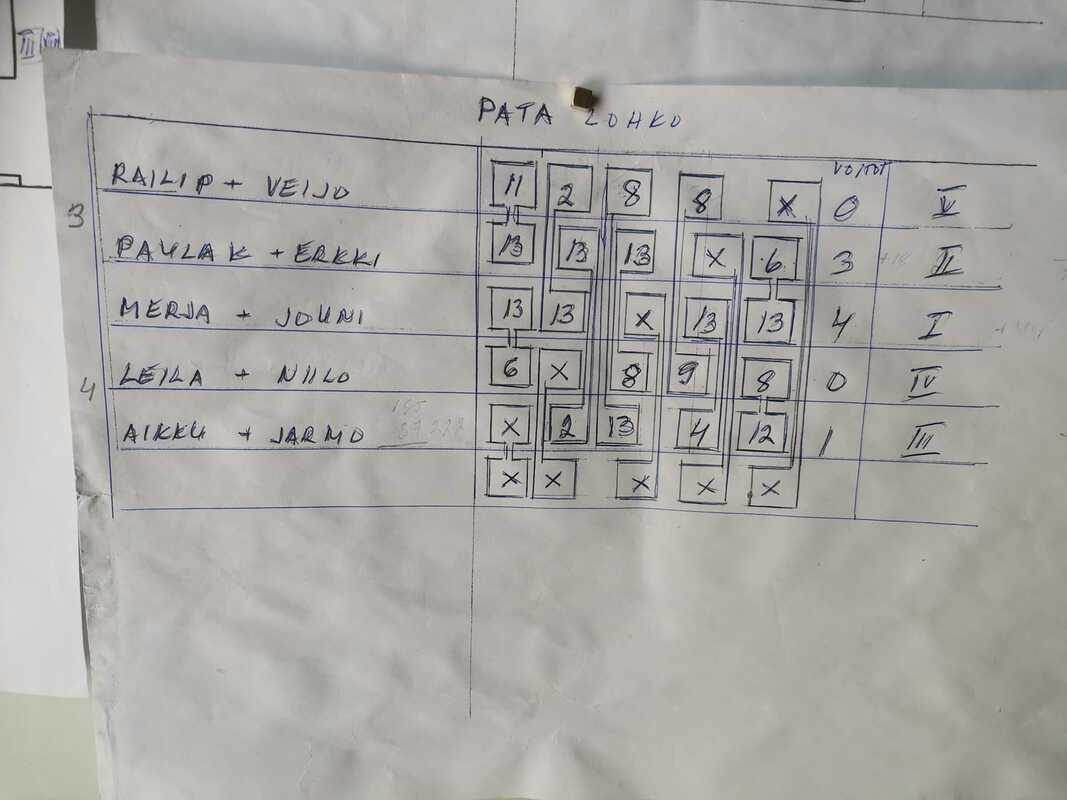 III
PATA LOHKO
VOITOT
RAILI P + VEIJO 11 2 8 8 X 0 V
3
PAULA K + ERKKI 13 13 13 X 6 3 II
MERJA + JOUNI 13 13 X 13 13 4 I
4
LEILA + NIILO 6 X 8 9 8 0 IV
AIKKU + JARMO X 2 13 4 12 1 III
X X X X X